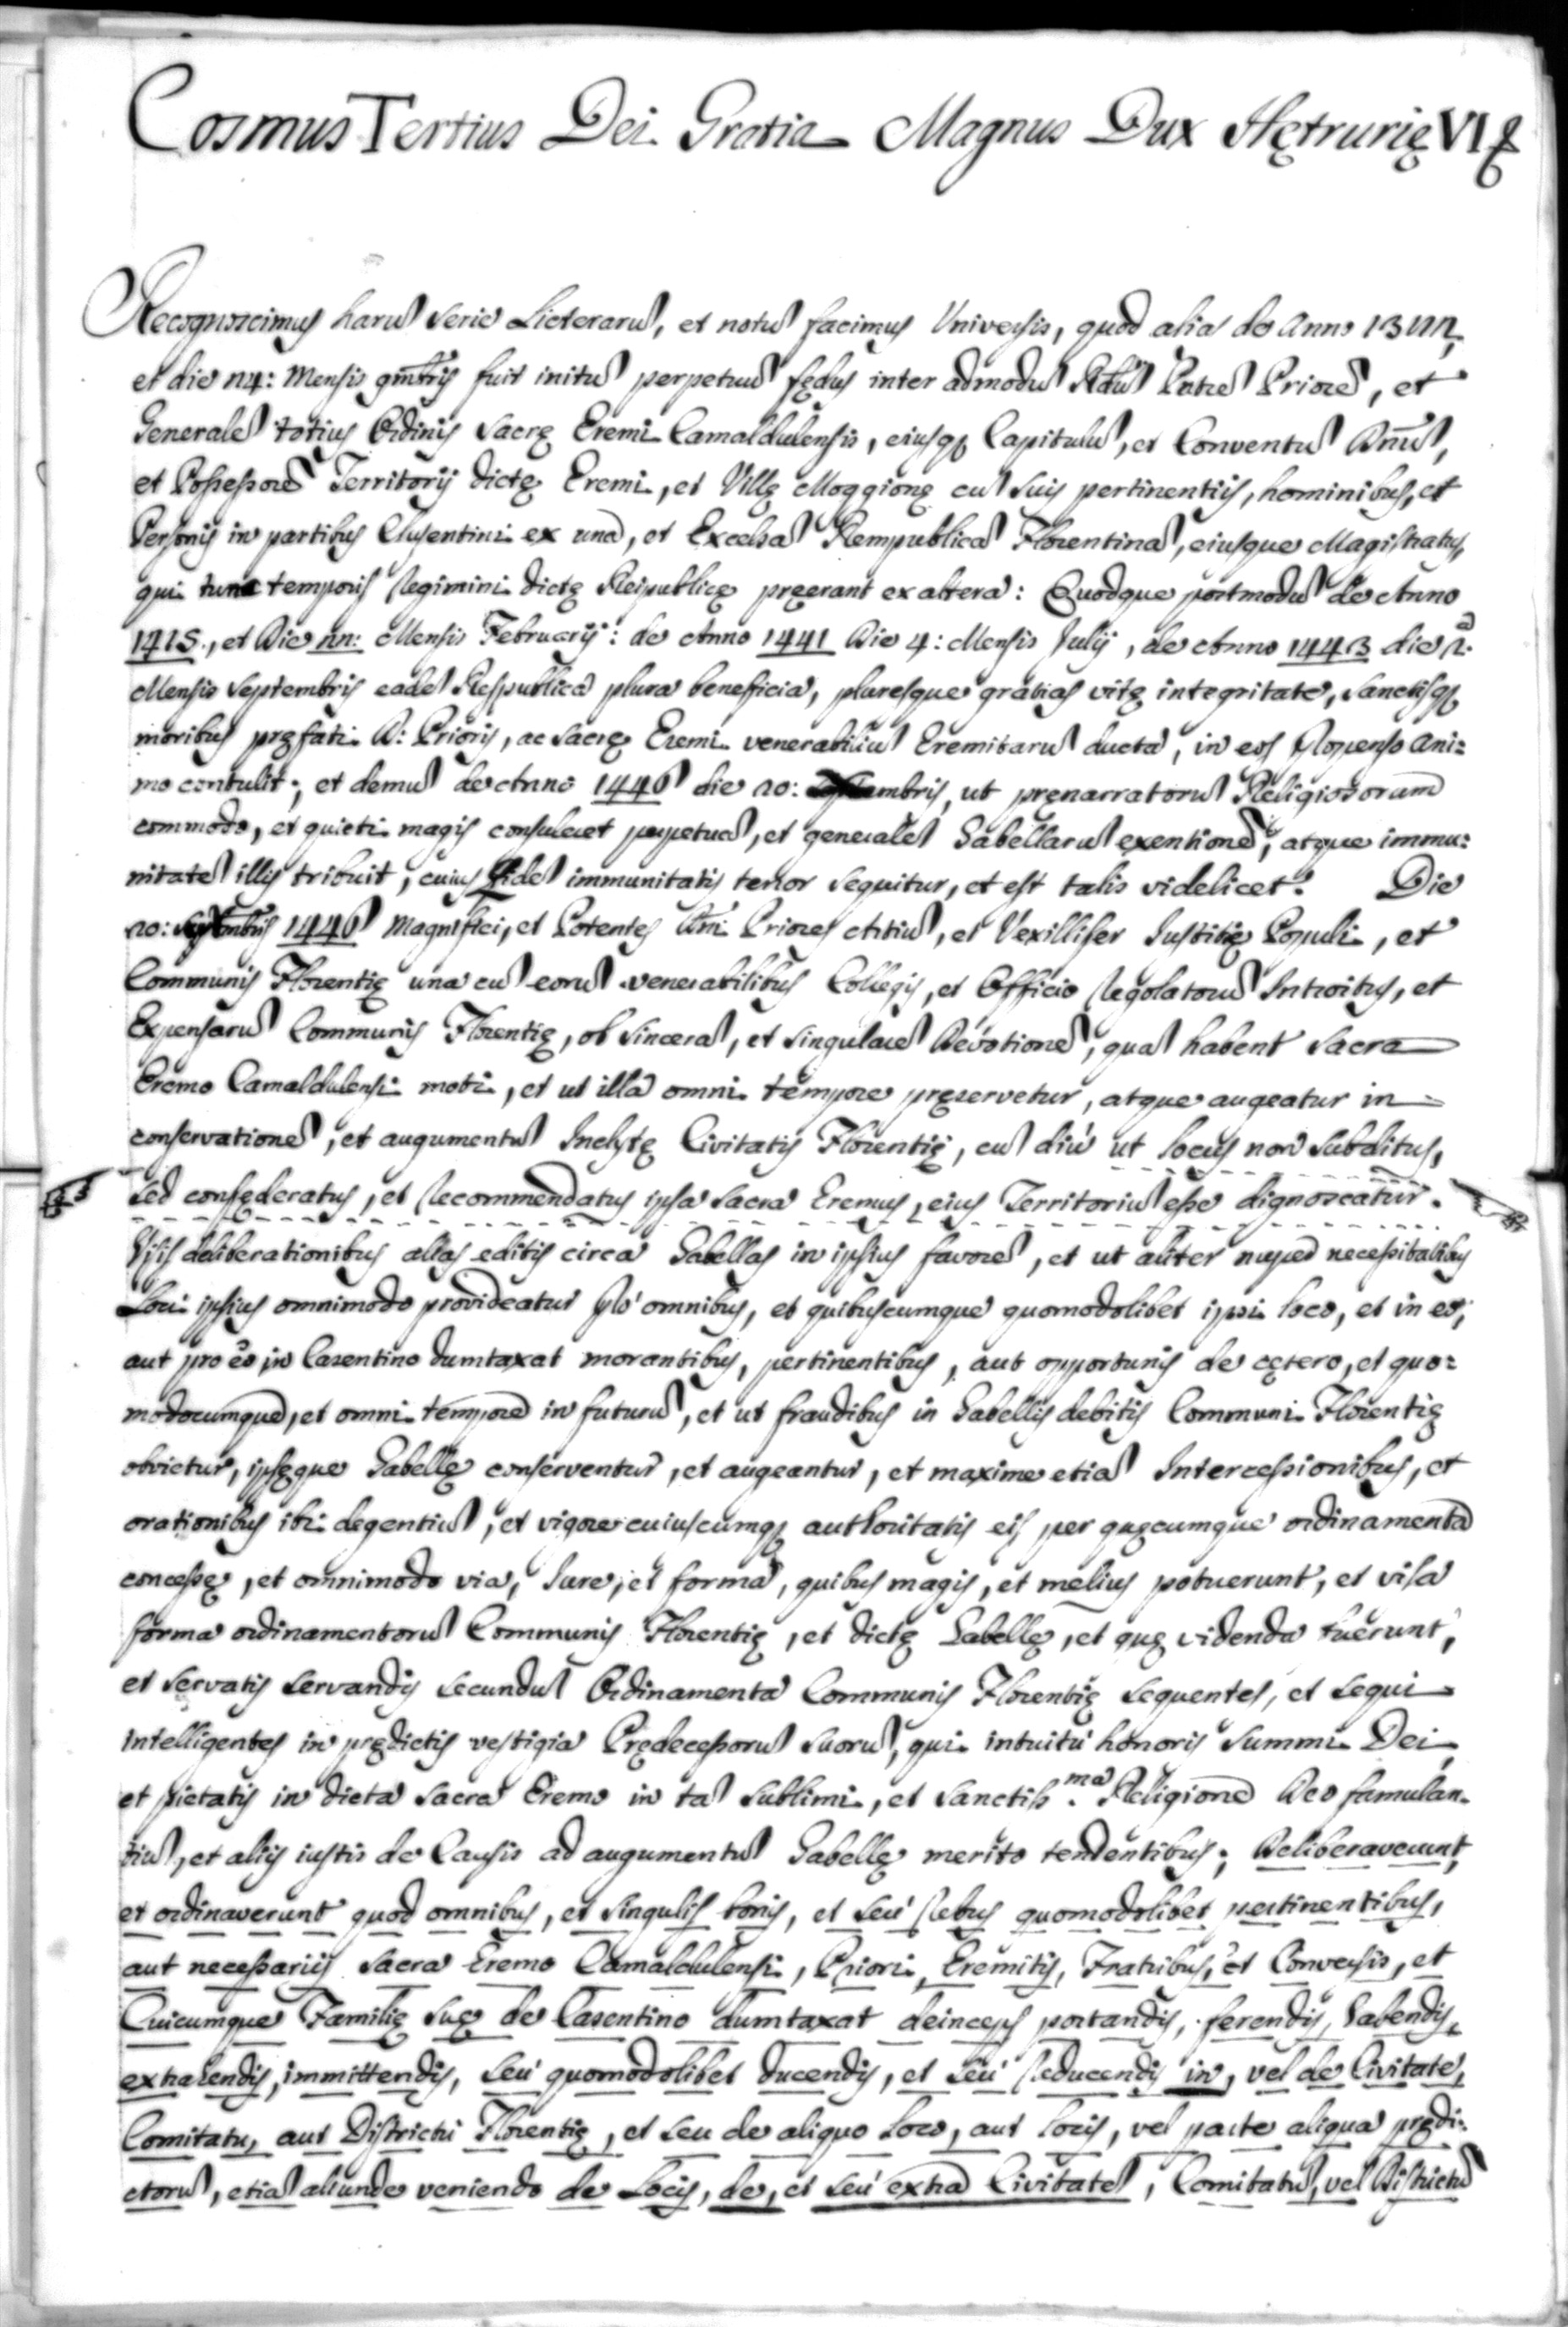 Cosmus Tertius Dei Gratia Magnus Dux Hętrurię VI &
Recognoscimus harū serie Licterarū, et notū facimus Universis, quod alias de Anno 13
et die 24: Mensis 9mbris fuit initū perpetuū fędus inter admodū Rdū Patrē Priorē, et
Generalē totius Ordinis Sacrę Eremi Camaldulensis, eiusq; Capitulū, et Conventū Dnū,
et Possessorē Territorij dictę Eremi, et Villę Moggionę cū suis pertinentiis, hominibus, et
Personis in partibus Clusentini ex unā, et Excelsā Rempublicā Florentinā, eiusque Magistratus,
qui tunc temporis Regimini dictę Reipublicę pręerant ex altera: Quodque postmodū de Anno
1415., et Die 22: Mensis Februarij: de Anno 1441 Die 4: Mensis Julij, de Anno 1443 die 2.a
Mensis Septembris eadē Respublica plura beneficia, pluresque gratias vitę integritate, sanctisq;
moribus pręfati D: Prioris, ac sacrę Eremi venerabiliū Eremitarū ducta, in eos propenso ani:
mo contulit; et demū de Anno 1446 die 20: Septembris, ut pręnarratorū Religiosorum
commodo, et quieti magis consuleret perpetuā, et generalē Gabellarū exentionē, atque immu:
nitatē illis tribuit, cuius quidē immunitatis tenor sequitur, et est talis videlicet. Die
20: Septembris 1446 Magnifici, et Potentes Dni Priores Artiū, et Vexillifer Justitię Populi, et
Communis Florentię una cū eorū venerabilibus Collegis, et Officio Regolatorū Introitus, et
Expensarū Communis Florentię, ob sincerā, et singularē Devotionē, quā habent sacra
Eremo Camaldulensi moti, et ut illa omni tempore pręservetur, atque augeatur in
conservationē, et augumentū Inclytę Civitatis Florentię, cū diù ut locus non subditus,
sed confęderatus, et Recommendatus ipsa sacra Eremus, eius Territoriū esse dignoscatur.
Visis deliberationibus alias editis circa Gabellas in ipsius favorē, et ut aliter nuper necessitatibus
Loci ipsius omnimodo provideatur Pro omnibus, et quibuscumque quomodolibet ipsi loco, et in eo,
aut pro eo in Casentino dumtaxat morantibus, pertinentibus, aut opportunis de cętero, et quo:
modocumque, et omni tempore in futurū, et ut fraudibus in Gabellis debitis Communi Florentię
obvietur, ipsęque Gabellę conserventur, et augeantur, et maxime etiā Intercessionibus, et
orationibus ibi degentiū, et vigore cuiuscumq; authoritatis eis per quęcumque ordinamenta
concessę, et omnimodo via, Iure, et forma, quibus magis, et melius potuerunt, et visa
forma ordinamentorū Communis Florentię, et dictę Gabellę, et quę videnda fuerunt,
et servatis servandis secundū Ordinamenta Communis Florentię sequentes, et sequi
intelligentes in prędictis vestigia Prędecessorū suorū, qui intuitu honoris Summi Dei,
et pietatis in dicta sacra Eremo in tā sublimi, et sanctiss.ma Religione Deo famulan-
tiū, et aliis iustis de Causis ad augumentū Gabellę merito tendentibus; Deliberaverunt,
et ordinaverunt quod omnibus, et singulis bonis, et seù Rebus quomodolibet pertinentibus,
aut necessariis sacra Eremo Camaldulensi, Priori, Eremitis, Fratribus, et Conversis, et
Cuicumque Familię suę de Casentino dumtaxat deinceps portandis, ferendis, habendis,
extrahendis, immittendis, seù quomodolibet ducendis, et seù Reducendis in, vel de Civitate,
Comitatu, aut Districtu Florentię, et seu de aliquo Loco, aut locis, vel parte aliqua prędi:
ctorū, etiā aliunde veniendo de Locis, de, et seù extra Civitatē, Comitatū, vel Districtū